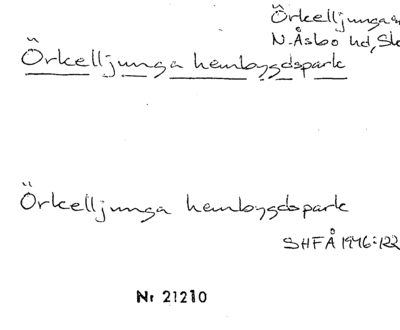 Örkelljunga sn
N. Åsbo hd, Sk
Örkelljunga hembygdspark
Örkelljunga hembygdspark
SHFÅ 1946:122
Nr 21210